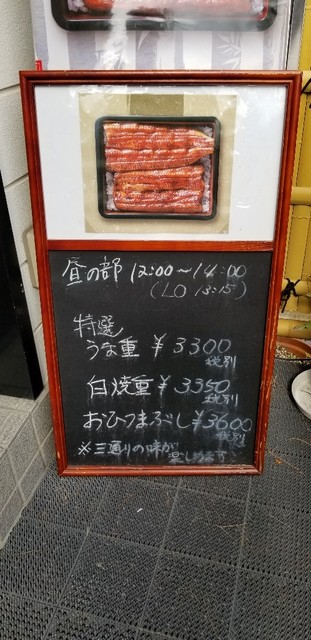 昼の部 12:00～14:00
(LO 13:15)
特選
うな重 ¥3300
税別
白焼重 ¥3350
税別
おひつまぶし ¥3600
税別
※三通りの味が
楽しめます